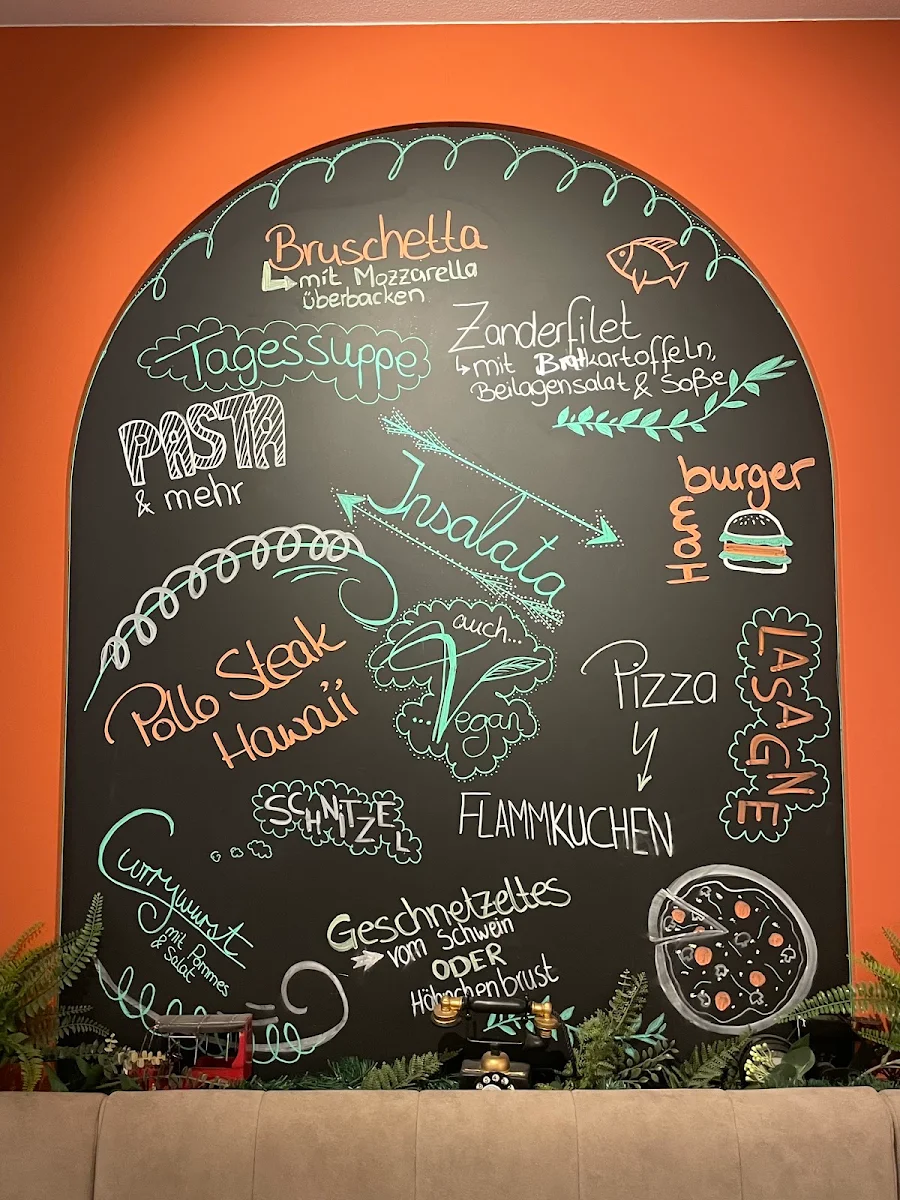 Bruschetta
mit Mozzarella
überbacken
Zanderfilet
mit Bratkartoffeln,
Beilagensalat & Soße
Tagessuppe
PASTA
& mehr
Insalata
Ham
burger
auch...
...Vegan
Pollo Steak
Hawaii
Pizza
LASAGNE
FLAMMKUCHEN
SCHNITZEL
Currywurst
mit Pommes
& Salat
Geschnetzeltes
vom Schwein
ODER
Hähnchenbrust